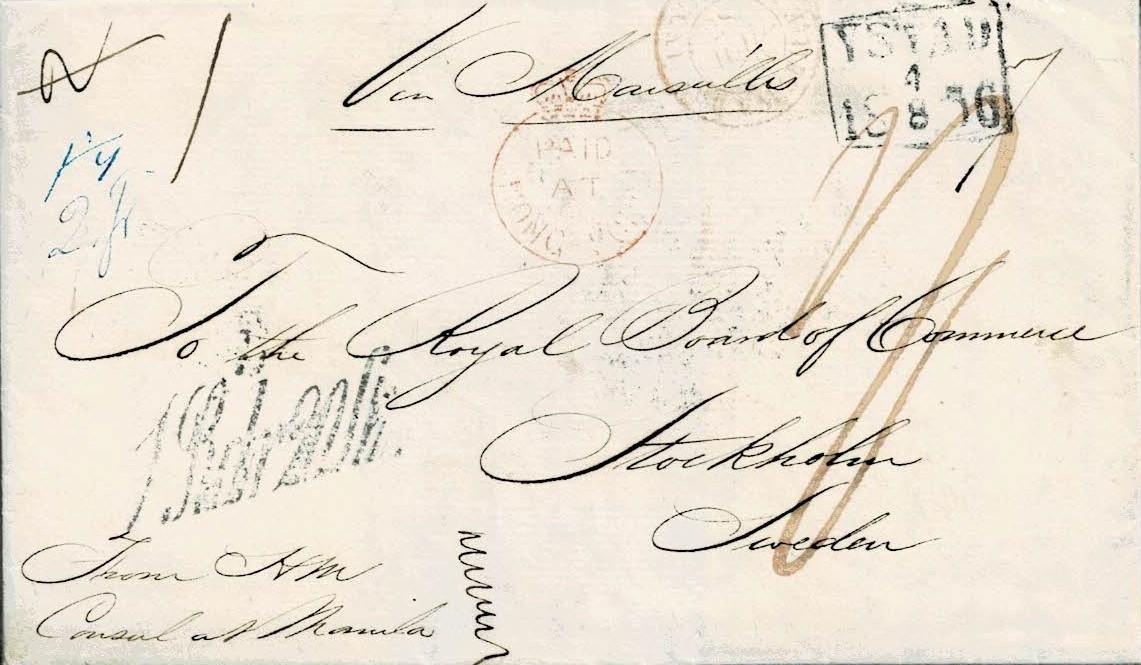 Via Marseilles
YSTAD
4
18 8 56
PAID
AT
HONG KONG
1/4
2 fr
To the Royal Board of Commerce
Stockholm
Sweden
From H M
Consul at Manila